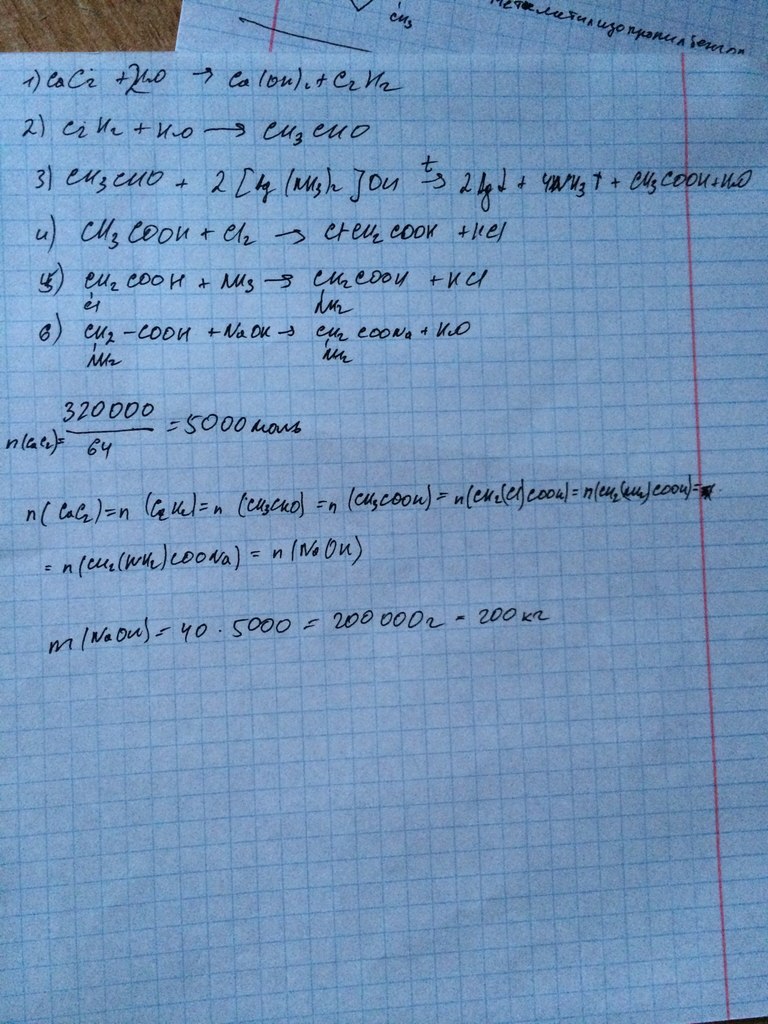 CH₃
метилизопропилбензол
1) CaC₂ + 2H₂O → Ca(OH)₂ + C₂H₂
2) C₂H₂ + H₂O → CH₃CHO
3) CH₃CHO + 2[Ag(NH₃)₂]OH t→ 2Ag↓ + 4NH₃↑ + CH₃COOH + H₂O
4) CH₃COOH + Cl₂ → ClCH₂COOH + HCl
5) CH₂COOH + NH₃ → CH₂COOH + HCl
Cl NH₂
6) CH₂-COOH + NaOH → CH₂COONa + H₂O
NH₂ NH₂
n(CaC₂) = 320000/64 = 5000 моль
n(CaC₂) = n(C₂H₂) = n(CH₃CHO) = n(CH₃COOH) = n(CH₂(Cl)COOH) = n(CH₂(NH₂)COOH) =
= n(CH₂(NH₂)COONa) = n(NaOH)
m(NaOH) = 40 · 5000 = 200 000 г = 200 кг